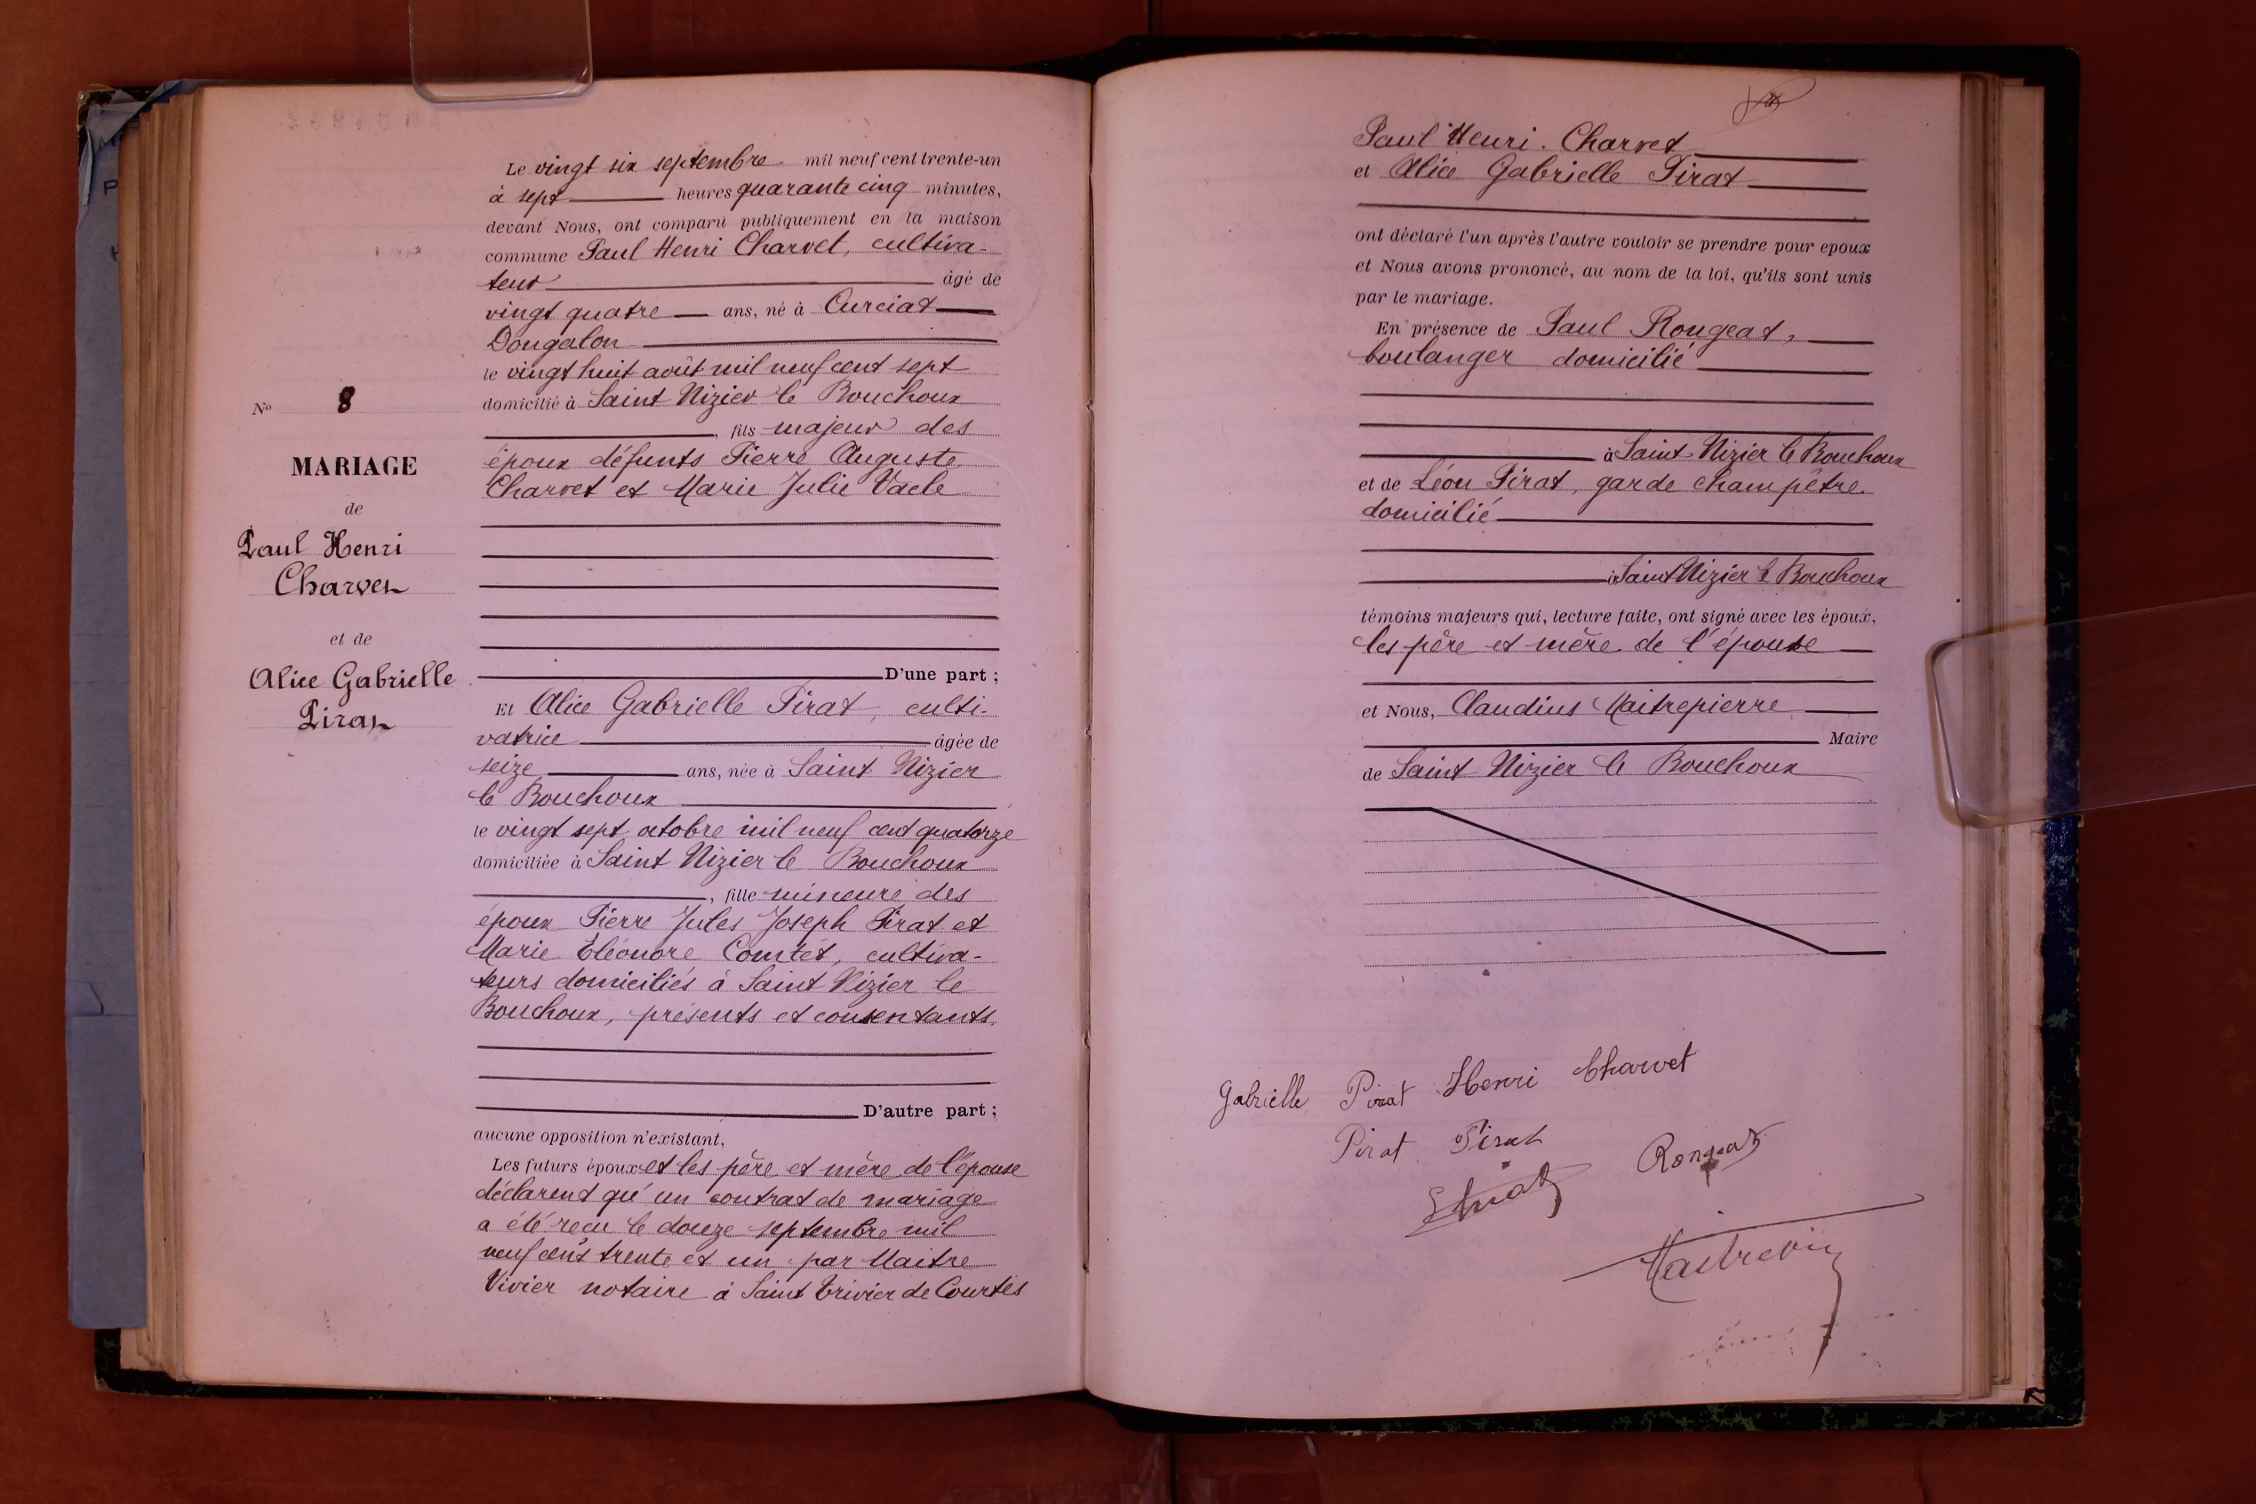 Le vingt six septembre mil neuf cent trente-un
à sept heures quarante cinq minutes,
devant Nous, ont comparu publiquement en la maison
commune Paul Henri Charvet, cultiva-
teur âgé de
vingt quatre ans, né à Curciat
Dongalon
le vingt huit août mil neuf cent sept
domicilié à Saint Nizier le Bouchoux
, fils majeur des
époux défunts Pierre Auguste
Charvet et Marie Julie Vacle
D'une part ;
Et Alice Gabrielle Pirat, culti-
vatrice âgée de
seize ans, née à Saint Nizier
le Bouchoux
le vingt sept octobre mil neuf cent quatorze
domiciliée à Saint Nizier le Bouchoux
, fille mineure des
époux Pierre Jules Joseph Pirat et
Marie Eléonore Comtet, cultiva-
teurs domiciliés à Saint Nizier le
Bouchoux, présents et consentants,
D'autre part ;
aucune opposition n'existant,
Les futurs époux et les père et mère de l'épouse
déclarent qu'un contrat de mariage
a été reçu le douze septembre mil
neuf cent trente et un par Maitre
Vivier notaire à Saint Trivier de Courtes
No 8
MARIAGE
de
Paul Henri
Charvet
et de
Alice Gabrielle
Pirat
Paul Henri Charvet
et Alice Gabrielle Pirat
ont déclaré l'un après l'autre vouloir se prendre pour epoux
et Nous avons prononcé, au nom de la loi, qu'ils sont unis
par le mariage.
En présence de Paul Rougeat,
boulanger domicilié
à Saint Nizier le Bouchoux
et de Léon Pirat, garde champêtre
domicilié
à Saint Nizier le Bouchoux
témoins majeurs qui, lecture faite, ont signé avec les époux,
les père et mère de l'épouse
et Nous, Claudius Maitrepierre
Maire
de Saint Nizier le Bouchoux
Gabrielle Pirat Henri Charvet
Pirat Pirat
Rongeat